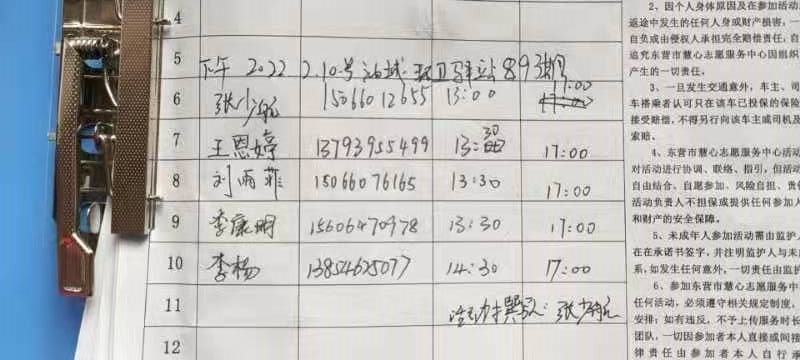 4
5
下午 2022 2.10号 油城·环卫驿站 893期
6 张少航 15066012655 13:00 17:00
7 王恩婷 13793955499 13:30 17:00
8 刘雨菲 15066076165 13:30 17:00
9 李康明 15606470978 13:30 17:00
10 李杨 13854625077 14:30 17:00
11 活动撰写：张少航
12
2、因个人身体原因及在参加活动
返途中发生的任何人身或财产损害，一
自负或由侵权人承担完全赔偿责任，自
追究东营市慧心志愿服务中心因组织
产生的一切责任。
3、一旦发生交通意外，车主、司
车搭乘者认可只在该车已投保的保险
接受赔偿，不得另行向该车主或司机及
索赔。
4、东营市慧心志愿服务中心活动
对活动进行协调、联络、指引，但活动
自由结合、自愿参加、风险自担、责
活动负责人不担保或提供任何参加人
和财产的安全保障。
5、未成年人参加活动需由监护人
在在承诺书签字，并注明监护人与未
系，如发生任何意外，一切责任由监护
6、参加东营市慧心志愿服务中
任何活动，必须遵守相关规定制度，
安排；如有违反，不予上传服务时长
团队，一切因参加者本人直接或间接
律责任由参加者本人自行承